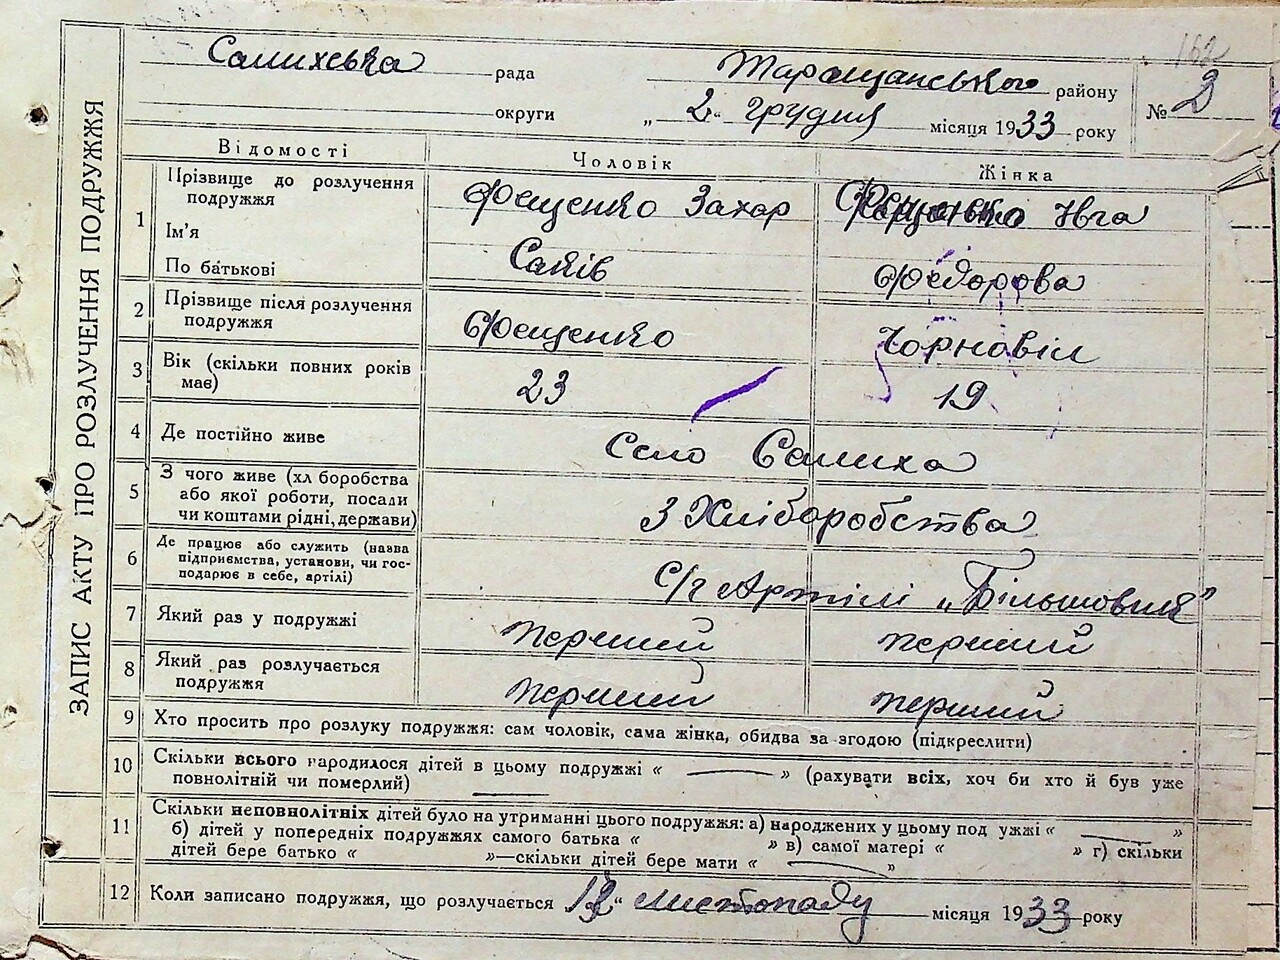 162
Салихська рада Таращанського району № 2
округи „ 2 “ грудня місяця 1933 року
ЗАПИС АКТУ ПРО РОЗЛУЧЕННЯ ПОДРУЖЖЯ
Відомості Чоловік Жінка
1 Прізвище до розлучення подружжя Фещенко Захар Фещенко Ївга
Ім'я
По батькові Савів Федорова
2 Прізвище після розлучення подружжя Фещенко Чорновіл
3 Вік (скільки повних років має) 23 19
4 Де постійно живе Село Салиха
5 З чого живе (хл боробства
або якої роботи, посади
чи коштами рідні, держави) З Хліборобства
6 Де працює або служить (назва
підприємства, установи, чи гос-
подарює в себе, артілі) С/г Артілі „Більшовик”
7 Який раз у подружжі перший перший
8 Який раз розлучається
подружжя перший перший
9 Хто просить про розлуку подружжя: сам чоловік, сама жінка, обидва за згодою (підкреслити)
10 Скільки всього народилося дітей в цьому подружжі « — » (рахувати всіх, хоч би хто й був уже
повнолітній чи померлий)
11 Скільки неповнолітніх дітей було на утриманні цього подружжя: а) народжених у цьому под ужжі « — »
б) дітей у попередніх подружжях самого батька « » в) самої матері « » г) скільки
дітей бере батько « »—скільки дітей бере мати « — »
12 Коли записано подружжя, що розлучається 12 “ листопаду місяця 1933 року